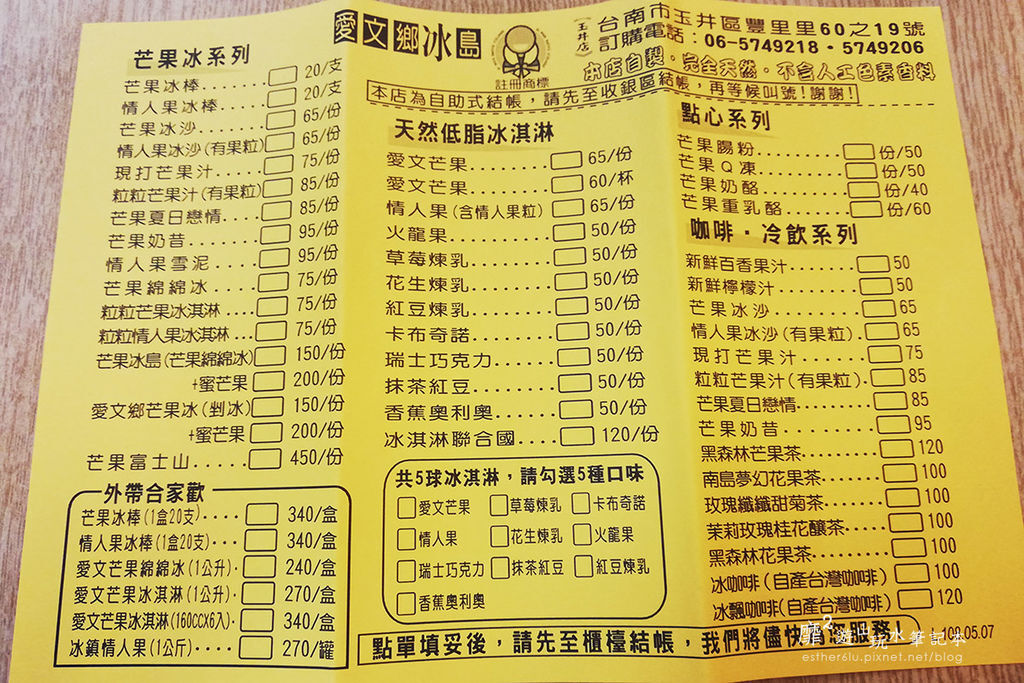 愛文鄉冰島
註冊商標
(玉井店)
台南市玉井區豐里里60之19號
訂購電話：06-5749218・5749206
本店自製，完全天然，不含人工色素香料
本店為自助式結帳，請先至收銀區結帳，再等候叫號！謝謝！
芒果冰系列
芒果冰棒......20/支
情人果冰棒....20/支
芒果冰沙......65/份
情人果冰沙(有果粒)65/份
現打芒果汁....75/份
粒粒芒果汁(有果粒)85/份
芒果夏日戀情....85/份
芒果奶昔.......95/份
情人果雪泥.....95/份
芒果綿綿冰.....75/份
粒粒芒果冰淇淋....75/份
粒粒情人果冰淇淋...75/份
芒果冰島(芒果綿綿冰)150/份
+蜜芒果 200/份
愛文鄉芒果冰(剉冰)150/份
+蜜芒果 200/份
芒果富士山.....450/份
外帶合家歡
芒果冰棒(1盒20支)....340/盒
情人果冰棒(1盒20支)...340/盒
愛文芒果綿綿冰(1公升).240/盒
愛文芒果冰淇淋(1公升).270/盒
愛文芒果冰淇淋(160CCX6入).340/盒
冰鎮情人果(1公斤)...270/罐
天然低脂冰淇淋
愛文芒果........65/份
愛文芒果........60/杯
情人果(含情人果粒)65/份
火龍果..........50/份
草莓煉乳........50/份
花生煉乳........50/份
紅豆煉乳........50/份
卡布奇諾........50/份
瑞士巧克力......50/份
抹茶紅豆........50/份
香蕉奧利奧......50/份
冰淇淋聯合國....120/份
共5球冰淇淋，請勾選5種口味
愛文芒果 草莓煉乳 卡布奇諾
情人果 花生煉乳 火龍果
瑞士巧克力 抹茶紅豆 紅豆煉乳
香蕉奧利奧
點心系列
芒果腸粉........份/50
芒果Q凍........份/50
芒果奶酪........份/40
芒果重乳酪......份/60
咖啡・冷飲系列
新鮮百香果汁.......50
新鮮檸檬汁........50
芒果冰沙.........65
情人果冰沙(有果粒).65
現打芒果汁.......75
粒粒芒果汁(有果粒).85
芒果夏日戀情.......85
芒果奶昔........95
黑森林芒果茶.......120
南島夢幻花果茶.....100
玫瑰纖纖甜菊茶.....100
茉莉玫瑰桂花釀茶....100
黑森林花果茶.......100
冰咖啡(自產台灣咖啡)100
冰飄咖啡(自產台灣咖啡)120
點單填妥後，請先至櫃檯結帳，我們將儘快為您服務！
109.05.07
esther61u.pixnet.net/blog